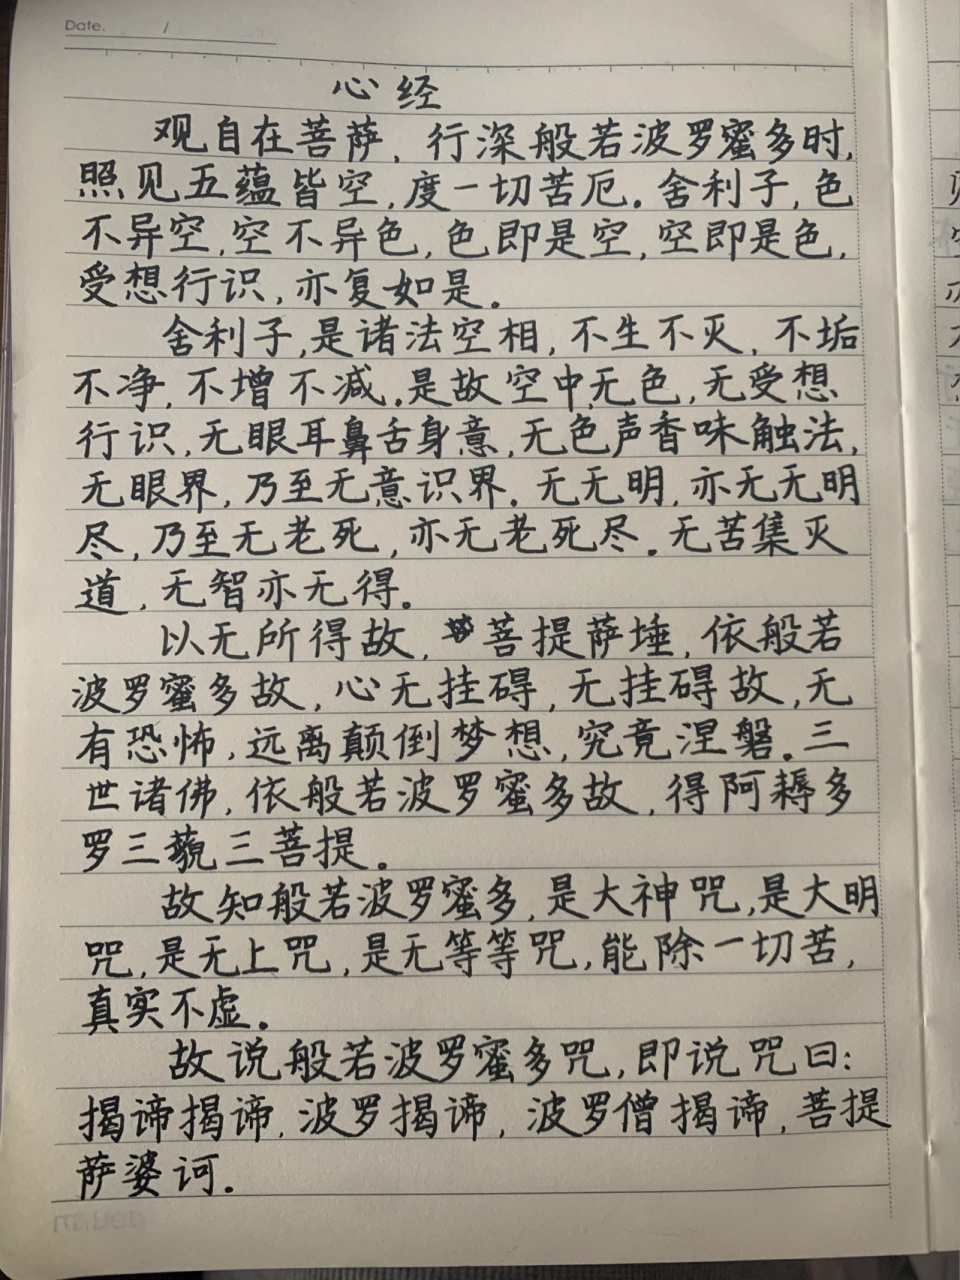 Date. /
心经
观自在菩萨，行深般若波罗蜜多时，
照见五蕴皆空，度一切苦厄。舍利子，色
不异空，空不异色，色即是空，空即是色，
受想行识，亦复如是。
舍利子，是诸法空相，不生不灭，不垢
不净，不增不减。是故空中无色，无受想
行识，无眼耳鼻舌身意，无色声香味触法，
无眼界，乃至无意识界。无无明，亦无无明
尽，乃至无老死，亦无老死尽。无苦集灭
道，无智亦无得。
以无所得故，菩提萨埵，依般若
波罗蜜多故，心无挂碍，无挂碍故，无
有恐怖，远离颠倒梦想，究竟涅磐。三
世诸佛，依般若波罗蜜多故，得阿耨多
罗三藐三菩提。
故知般若波罗蜜多，是大神咒，是大明
咒，是无上咒，是无等等咒，能除一切苦，
真实不虚。
故说般若波罗蜜多咒，即说咒曰：
揭谛揭谛，波罗揭谛，波罗僧揭谛，菩提
萨婆诃。